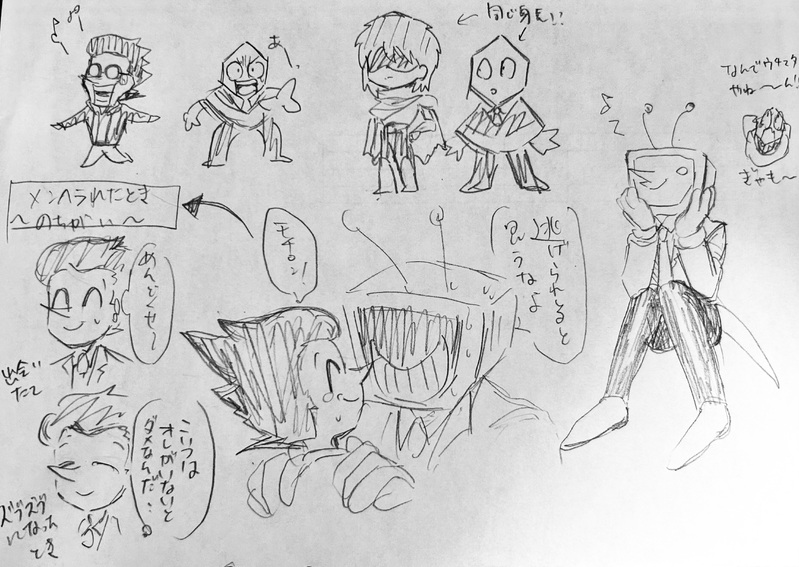 あーっ
同じ身長!!
なんでウチュタ
やねーん!!
ぎゃもー
メンヘラれたとき
〜のちがい〜
モチロン!
逃げられると
思うなよ
めんどくせ〜
出会い
たて
こいつは
オレがいないと
ダメなんだ…
ズブズブ
になった
とき